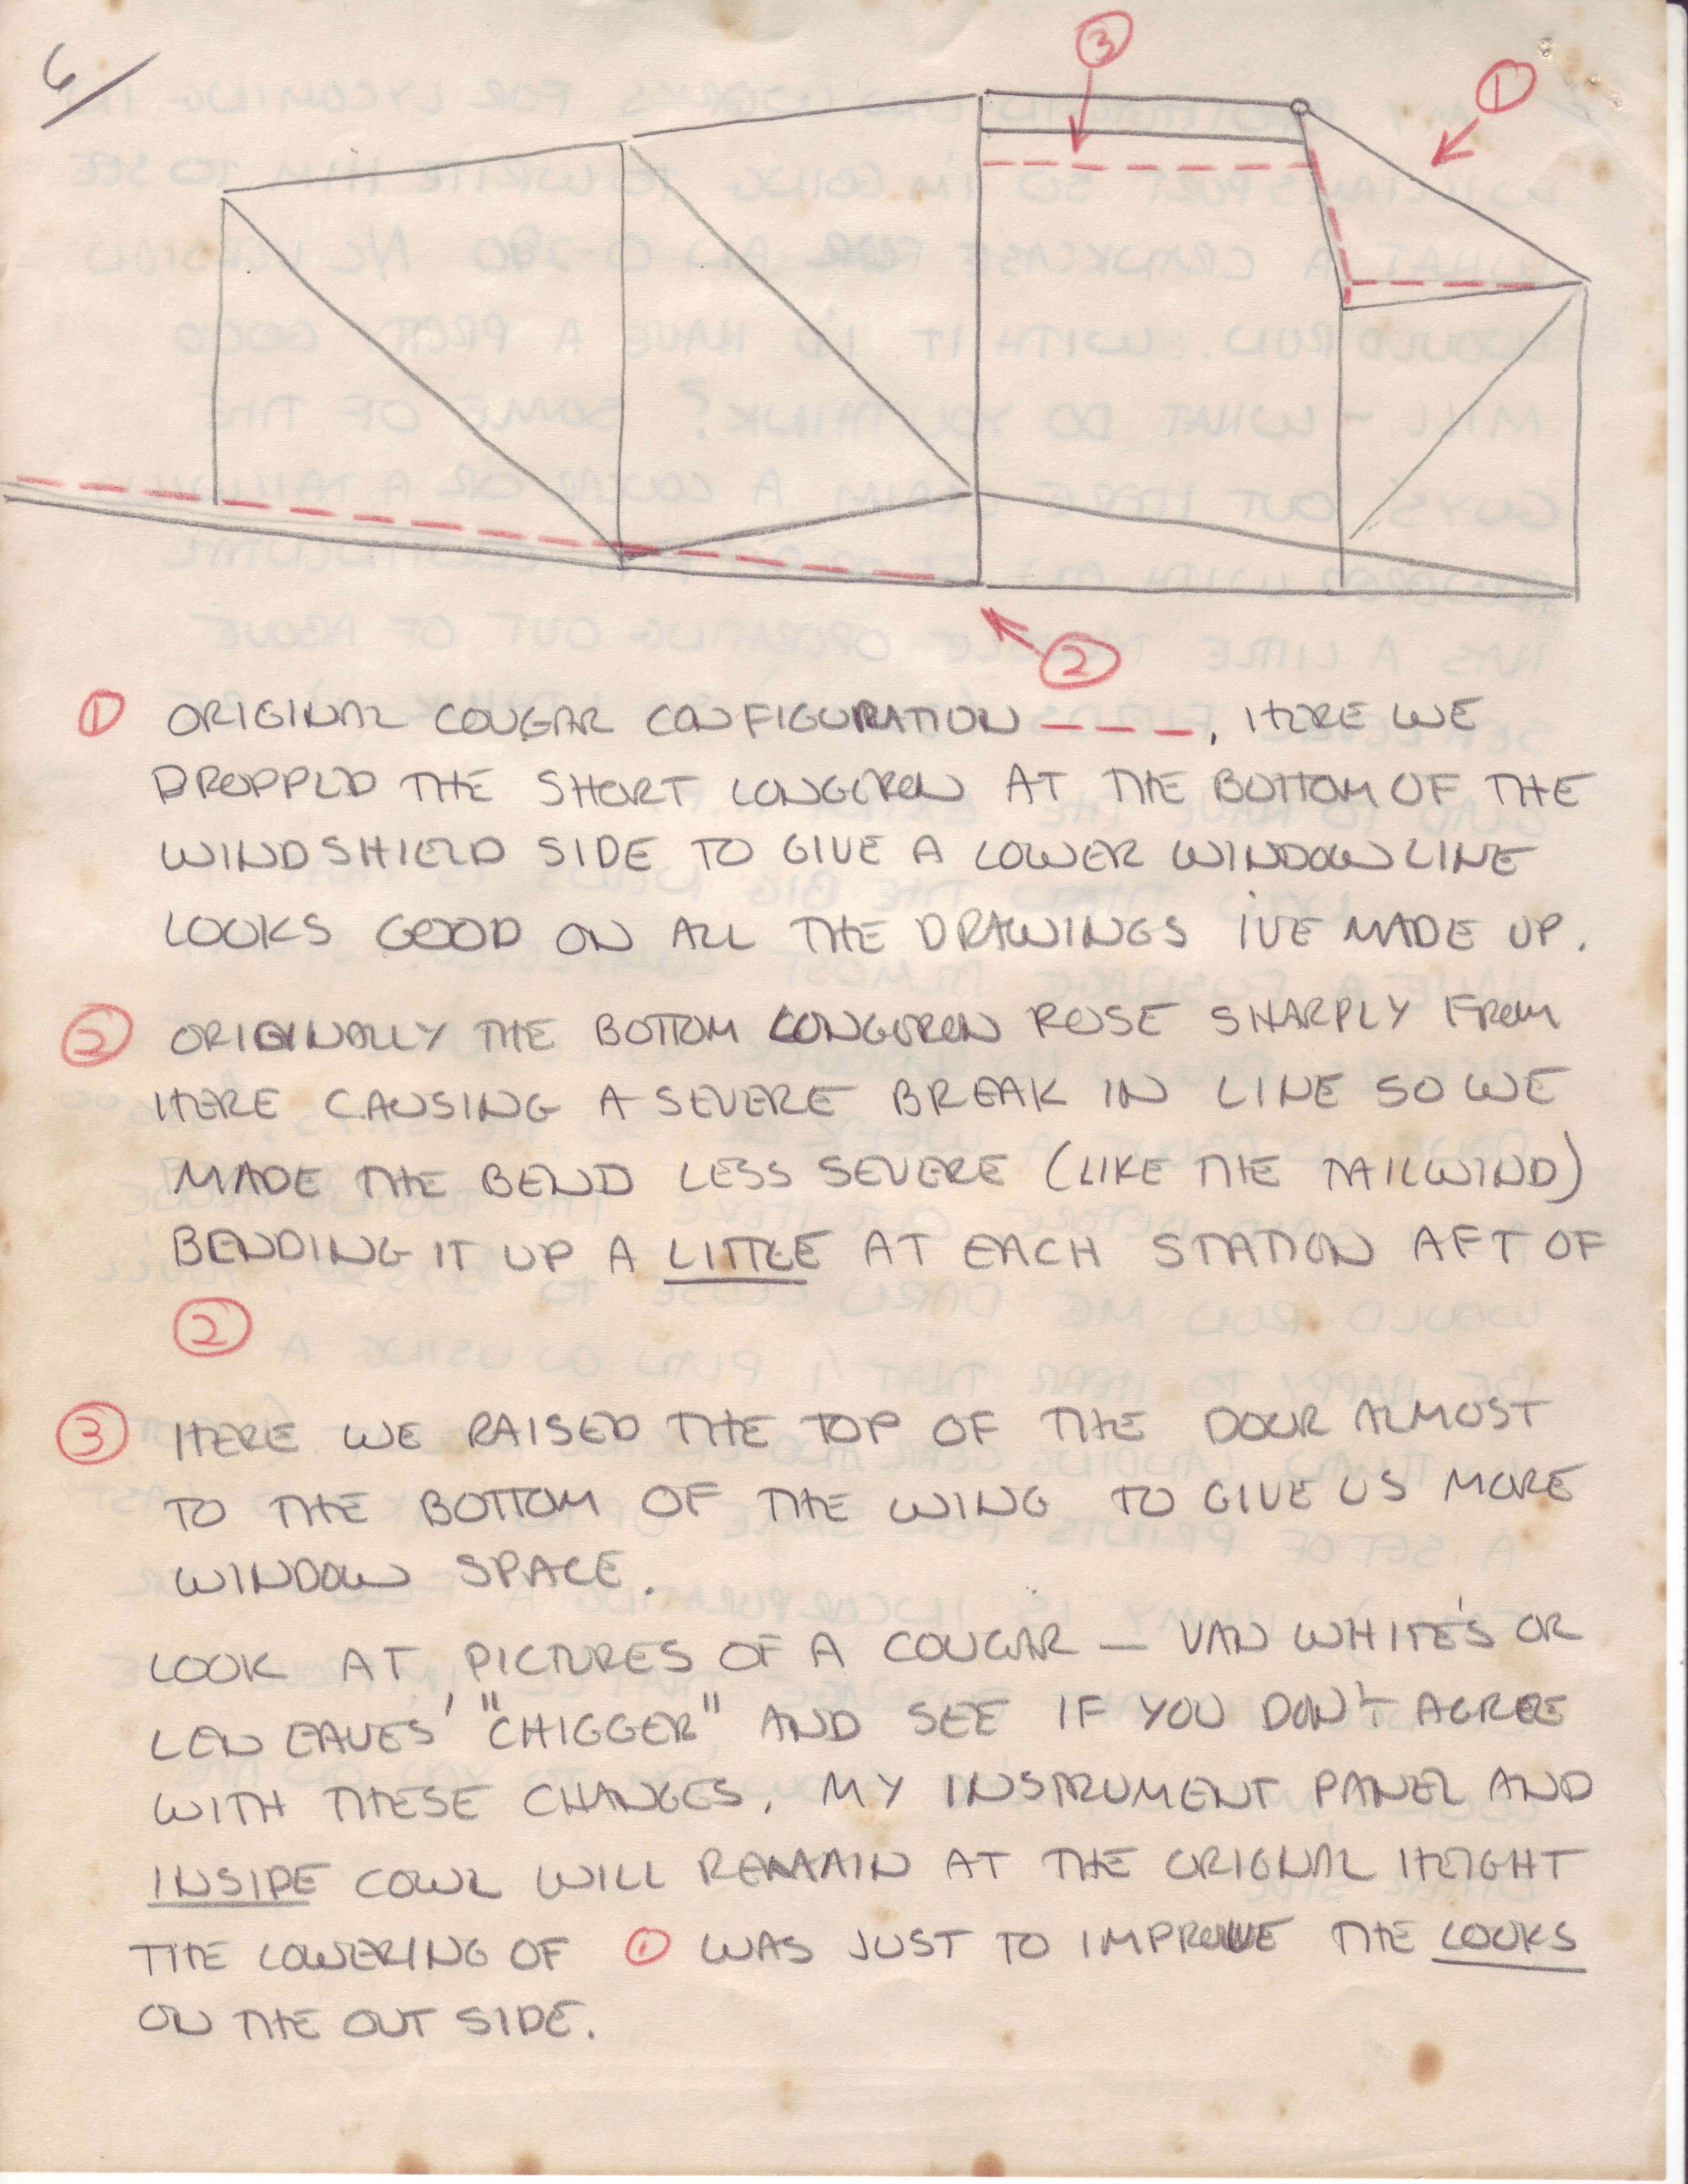 6/
3
1
2
1 ORIGINAL COUGAR CONFIGURATION – – – –, HERE WE
DROPPED THE SHORT LONGERON AT THE BOTTOM OF THE
WINDSHIELD SIDE TO GIVE A LOWER WINDOW LINE
LOOKS GOOD ON ALL THE DRAWINGS I'VE MADE UP.
2 ORIGINALLY THE BOTTOM LONGERON ROSE SHARPLY FROM
HERE CAUSING A SEVERE BREAK IN LINE SO WE
MADE THE BEND LESS SEVERE (LIKE THE TAILWIND)
BENDING IT UP A LITTLE AT EACH STATION AFT OF
2
3 HERE WE RAISED THE TOP OF THE DOOR ALMOST
TO THE BOTTOM OF THE WING TO GIVE US MORE
WINDOW SPACE.
LOOK AT PICTURES OF A COUGAR – VAN WHITE'S OR
LEN EAVES' "CHIGGER" AND SEE IF YOU DON'T AGREE
WITH THESE CHANGES. MY INSTRUMENT PANEL AND
INSIDE COWL WILL REMAIN AT THE ORIGNAL HEIGHT
THE LOWERING OF 1 WAS JUST TO IMPROVE THE LOOKS
ON THE OUT SIDE.